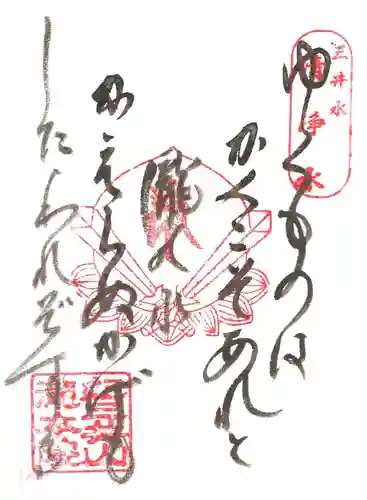 三井水
清浄水
ゆくものは
かくこそあれと
瀧之水
かえらぬかげも
したわれぞする